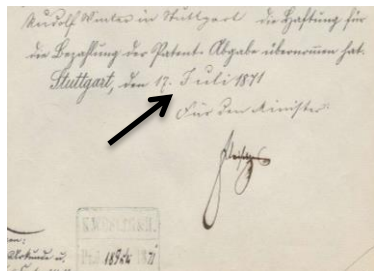 Rudolf Winter in Stuttgart die Haftung für
die Bezahlung der Patent-Abgabe übernommen hat.
Stuttgart, den 17. Juli 1871
Für den Minister: